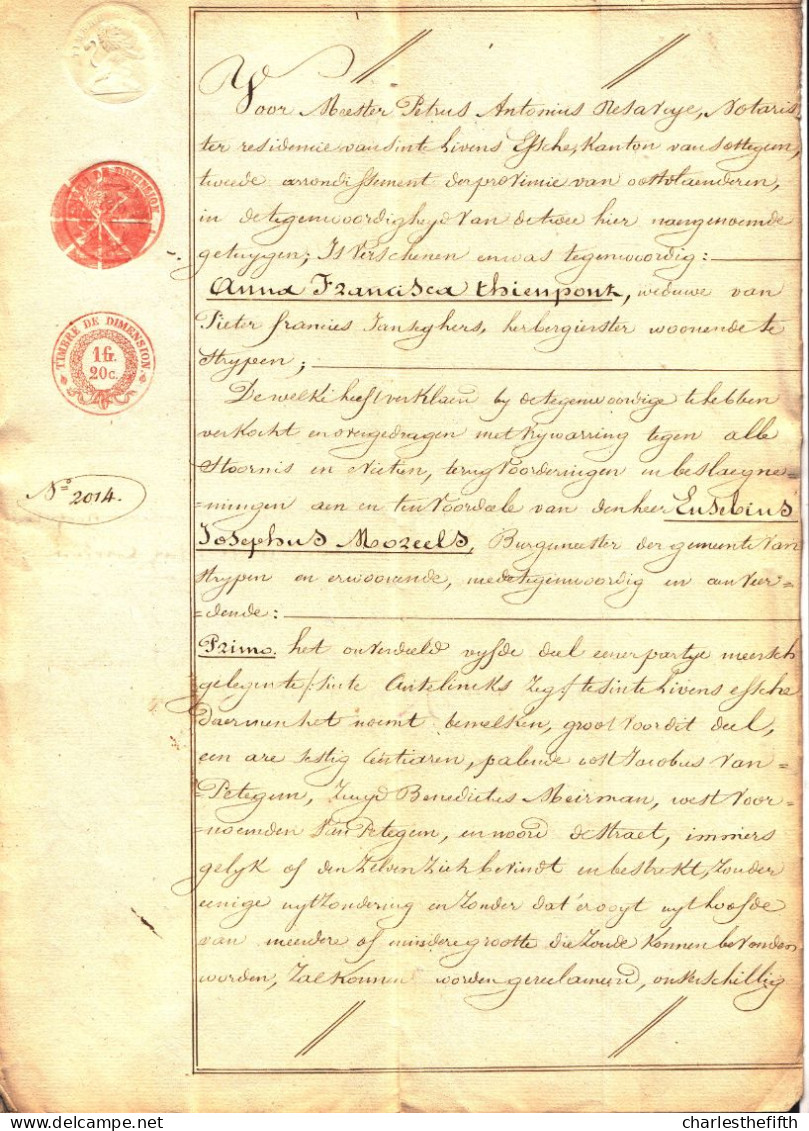 Voor Meester Petrus Antonius Desavye, Notaris
ter residencie van Sinte Livens Essche, Kanton van Sottegem,
tweede arrondissement der provincie van oostvlaenderen,
in de tegenwoordigheyd van de twee hier naergenoemde
getuygen; Is Verschenen en was tegenwoordig:
Anna Francisca Thienpont, weduwe van
Pieter francies Janseghers, herbergierster woonende te
Strypen;
De welke heeft verklaerd by de tegenwoordige te hebben
verkocht en overgedragen met Vrywarring tegen alle
Stoornis en Evictien, terug Voorderingen en beslaegne=
=mingen aen en ten Voordeele van den heer Eusebius
Josephus Mozeels, Burgmeester der gemeente Van
Strypen en er woonende, mede tegenwoordig en aenveer=
=dende:
Primo. het onverdeeld vyfde deel eener partye meersch
gelegen te /: Sinte Antelincks zeg :/ te Sinte Livens essche
Daer men het noemt bemelken, groot Voor dit deel,
een are sestig Centiaren, palende oost Jacobus Van=
=Petegem, Zuyd Benedictus Meirman, west Voor=
=noemden Van Petegem, en noord de straet, immers
gelyk of den Zelven Zich bevindt en bestrekt, Zonder
eenige uytzondering en Zonder dat er ooyt uyt hoofde
van meerdere of mindere grootte die Zoude Konnen bevonden
worden, Zal Konnen worden gereclameerd, onverschillig
TIMBRE DE DIMENSION.
1 fr.
20 c.
No. 2014.
charlesthefifth